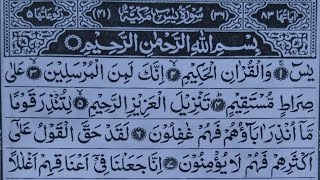 اٰیَاتُهَا ٨٣ (٣٦) سُوْرَةُ یٰسٓ مَكِّیَّةٌ (٤١) رُكُوْعَاتُهَا ٥
بِسْمِ اللّٰهِ الرَّحْمٰنِ الرَّحِیْمِ
یٰسٓ ۝١ وَالْقُرْاٰنِ الْحَكِیْمِ ۝٢ اِنَّكَ لَمِنَ الْمُرْسَلِیْنَ ۝٣ عَلٰی
صِرَاطٍ مُّسْتَقِیْمٍ ۝٤ تَنْزِیْلَ الْعَزِیْزِ الرَّحِیْمِ ۝٥ لِتُنْذِرَ قَوْمًا
مَّاۤ اُنْذِرَ اٰبَآؤُهُمْ فَهُمْ غٰفِلُوْنَ ۝٦ لَقَدْ حَقَّ الْقَوْلُ عَلٰۤی
اَكْثَرِهِمْ فَهُمْ لَا یُؤْمِنُوْنَ ۝٧ اِنَّا جَعَلْنَا فِیْۤ اَعْنَاقِهِمْ اَغْلٰلًا